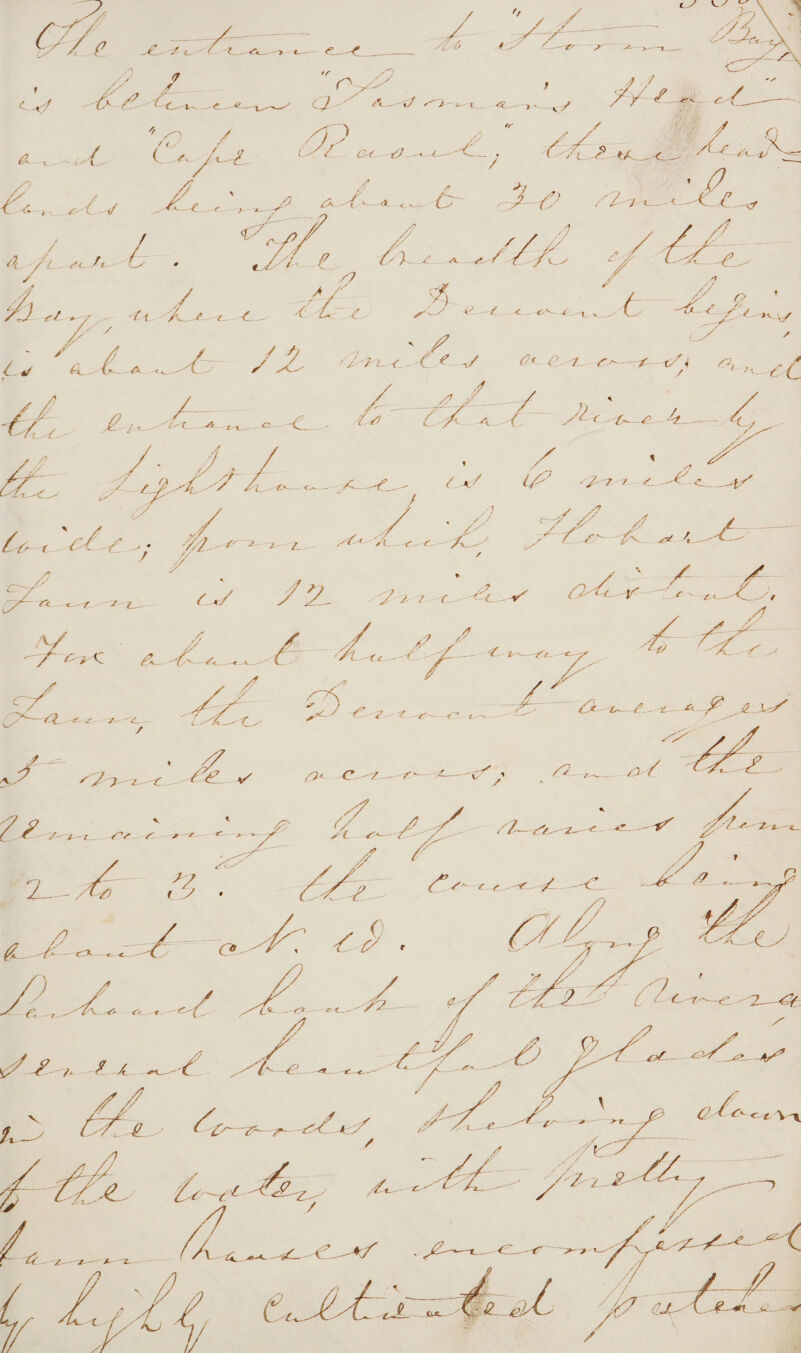 The entrance to "Storm Bay,
is between "Tasman's Head"
and "Cape Raoul", these head=
lands being about 30 miles
apart. The breadth of the
Bay, where the Derwent begins,
is about 12 miles across; and
the entrance to that river by
the Lighthouse, is 6 miles
wide; from which, Hobart
Town is 12 miles distant.
For about half way to the
Town, the Derwent averages
5 miles across; and the
remaining half varies from
2 to 3. the course being
about N. W. Along the
Larboard bank of the river a
several beautiful glades
in the woods, shelving down
to the water, with pretty
farm houses encompassed
by highly cultivated patches